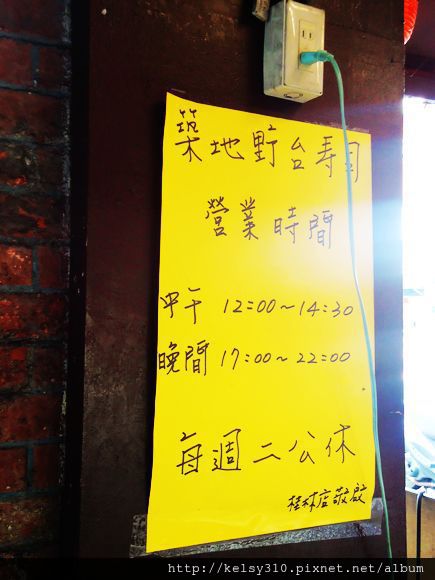 築地野台壽司
營業時間
中午 12:00~14:30
晚間 17:00~22:00
每週二公休
桂林店敬啟
http://kelsy310.pixnet.net/album